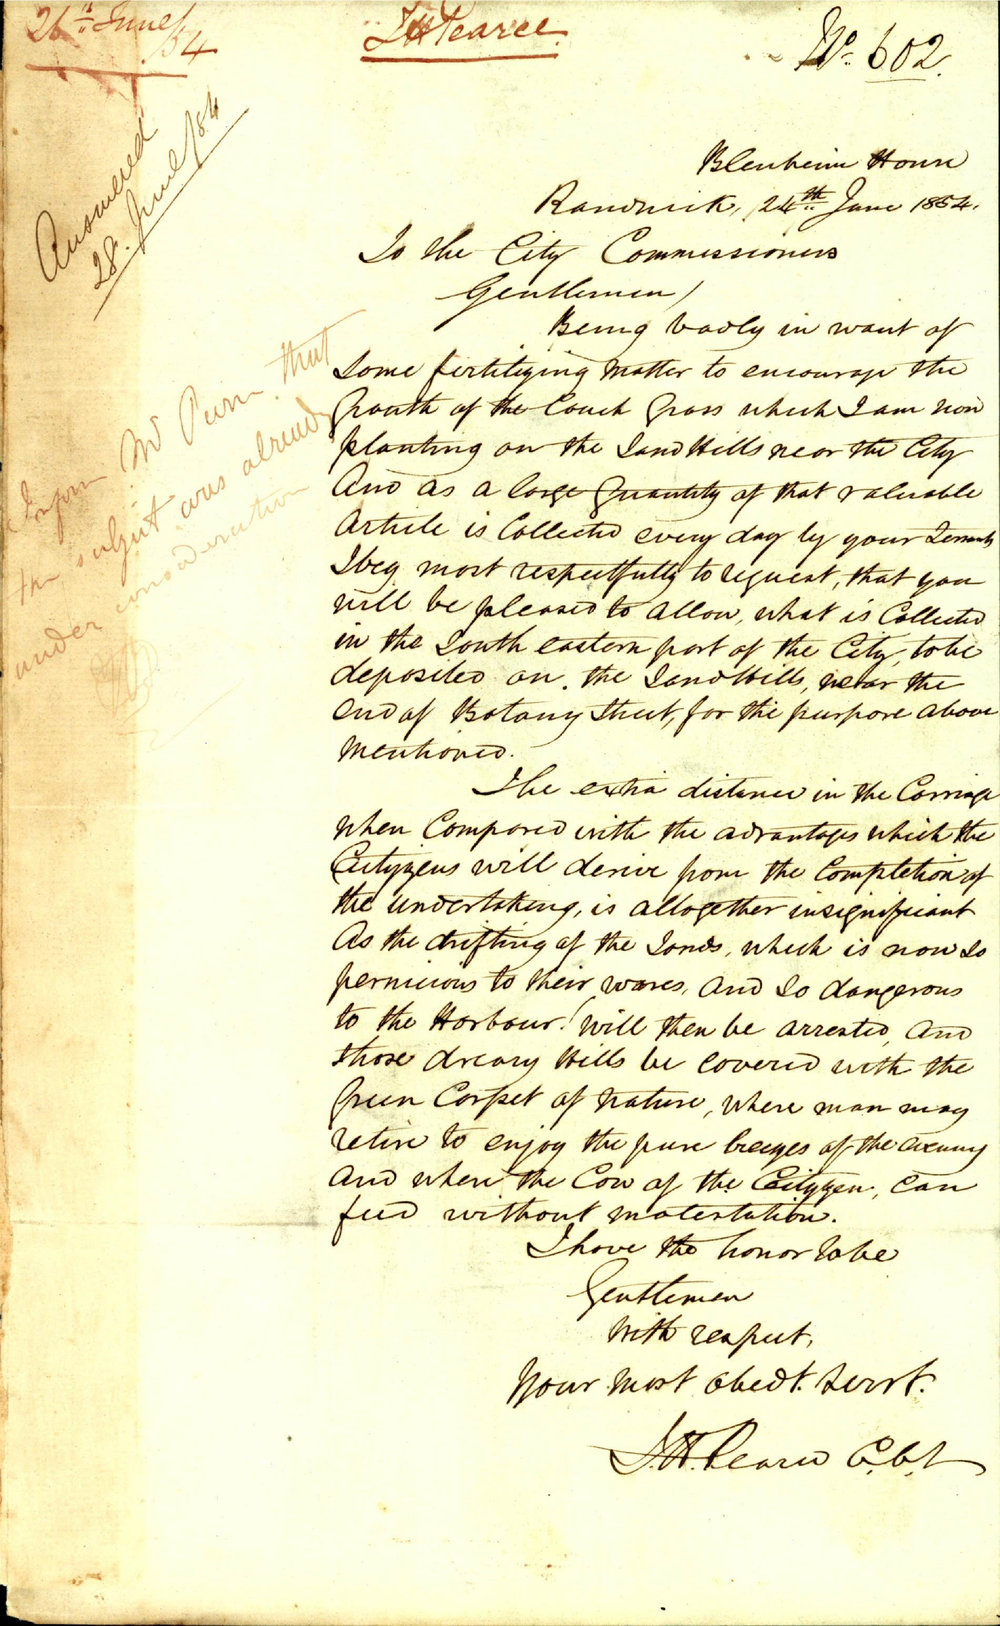 26th June/54
J H Pearce
No. 602.
Answered
28. June/54
Inform Mr Pearce that
the subject was already
under consideration
Blenheim House
Randwick, 24th June 1854.
To the City Commissioners
Gentlemen/
Being badly in want of
some fertilizing matter to encourage the
Growth of the Couch Grass which I am now
planting on the Sand Hills near the City
And as a large Quantity of that valuable
Article is Collected every day by your Servants
I beg most respectfully to request, that you
will be pleased to allow, what is Collected
in the South eastern part of the City, to be
deposited on the Sand Hills, near the
end of Botany Street, for the purpose above
mentioned.
The extra distance in the Carriage
when Compared with the advantages which the
Cityzens will derive from the Completion of
the undertaking, is altogether insignificant
As the drifting of the Sands, which is now so
pernicious to their wares, And so dangerous
to the Harbour! will then be arrested, and
those dreary Hills be covered with the
Green Carpet of nature, where man may
retire to enjoy the pure breezes of the evening
And where the Cow of the Cityzen, can
feed without molestation.
I have the honor to be
Gentlemen
With respect,
Your most obedt. Servt.
J.H. Pearce C.C.L